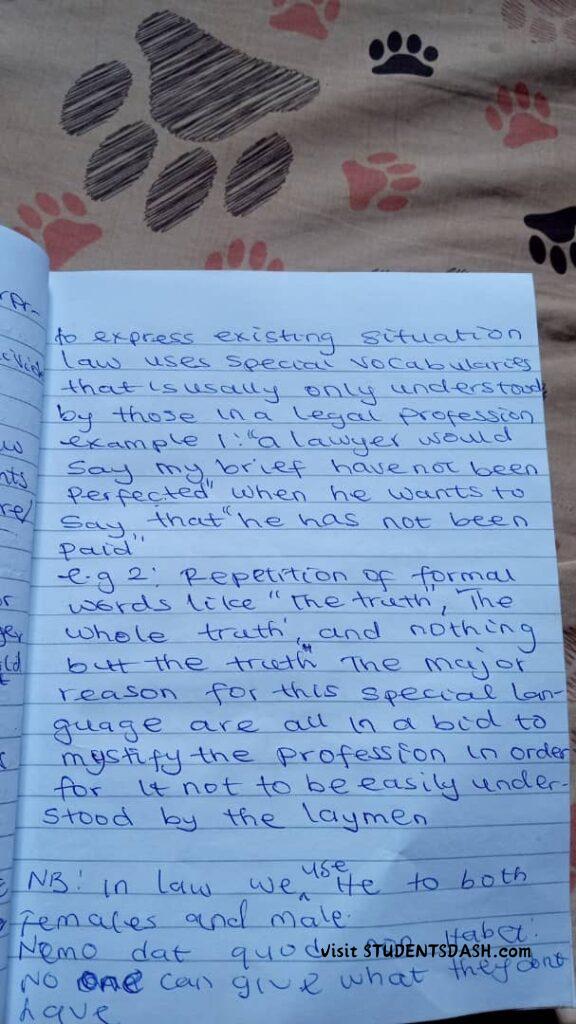 to express existing situation
law uses special vocabularies
that is usally only understood
by those in a legal profession
example 1: "a lawyer would
say my brief have not been
perfected" when he wants to
say that "he has not been
paid"
e.g 2: Repetition of formal
words like "The truth", The
whole truth', and nothing
but the truth" The major
reason for this special lan-
guage are all in a bid to
mystify the profession in order
for it not to be easily under-
stood by the laymen
NB: in law we use He to both
females and male.
Nemo dat quod non Habet:
Visit STUDENTSDASH.com
No one can give what they dont
have